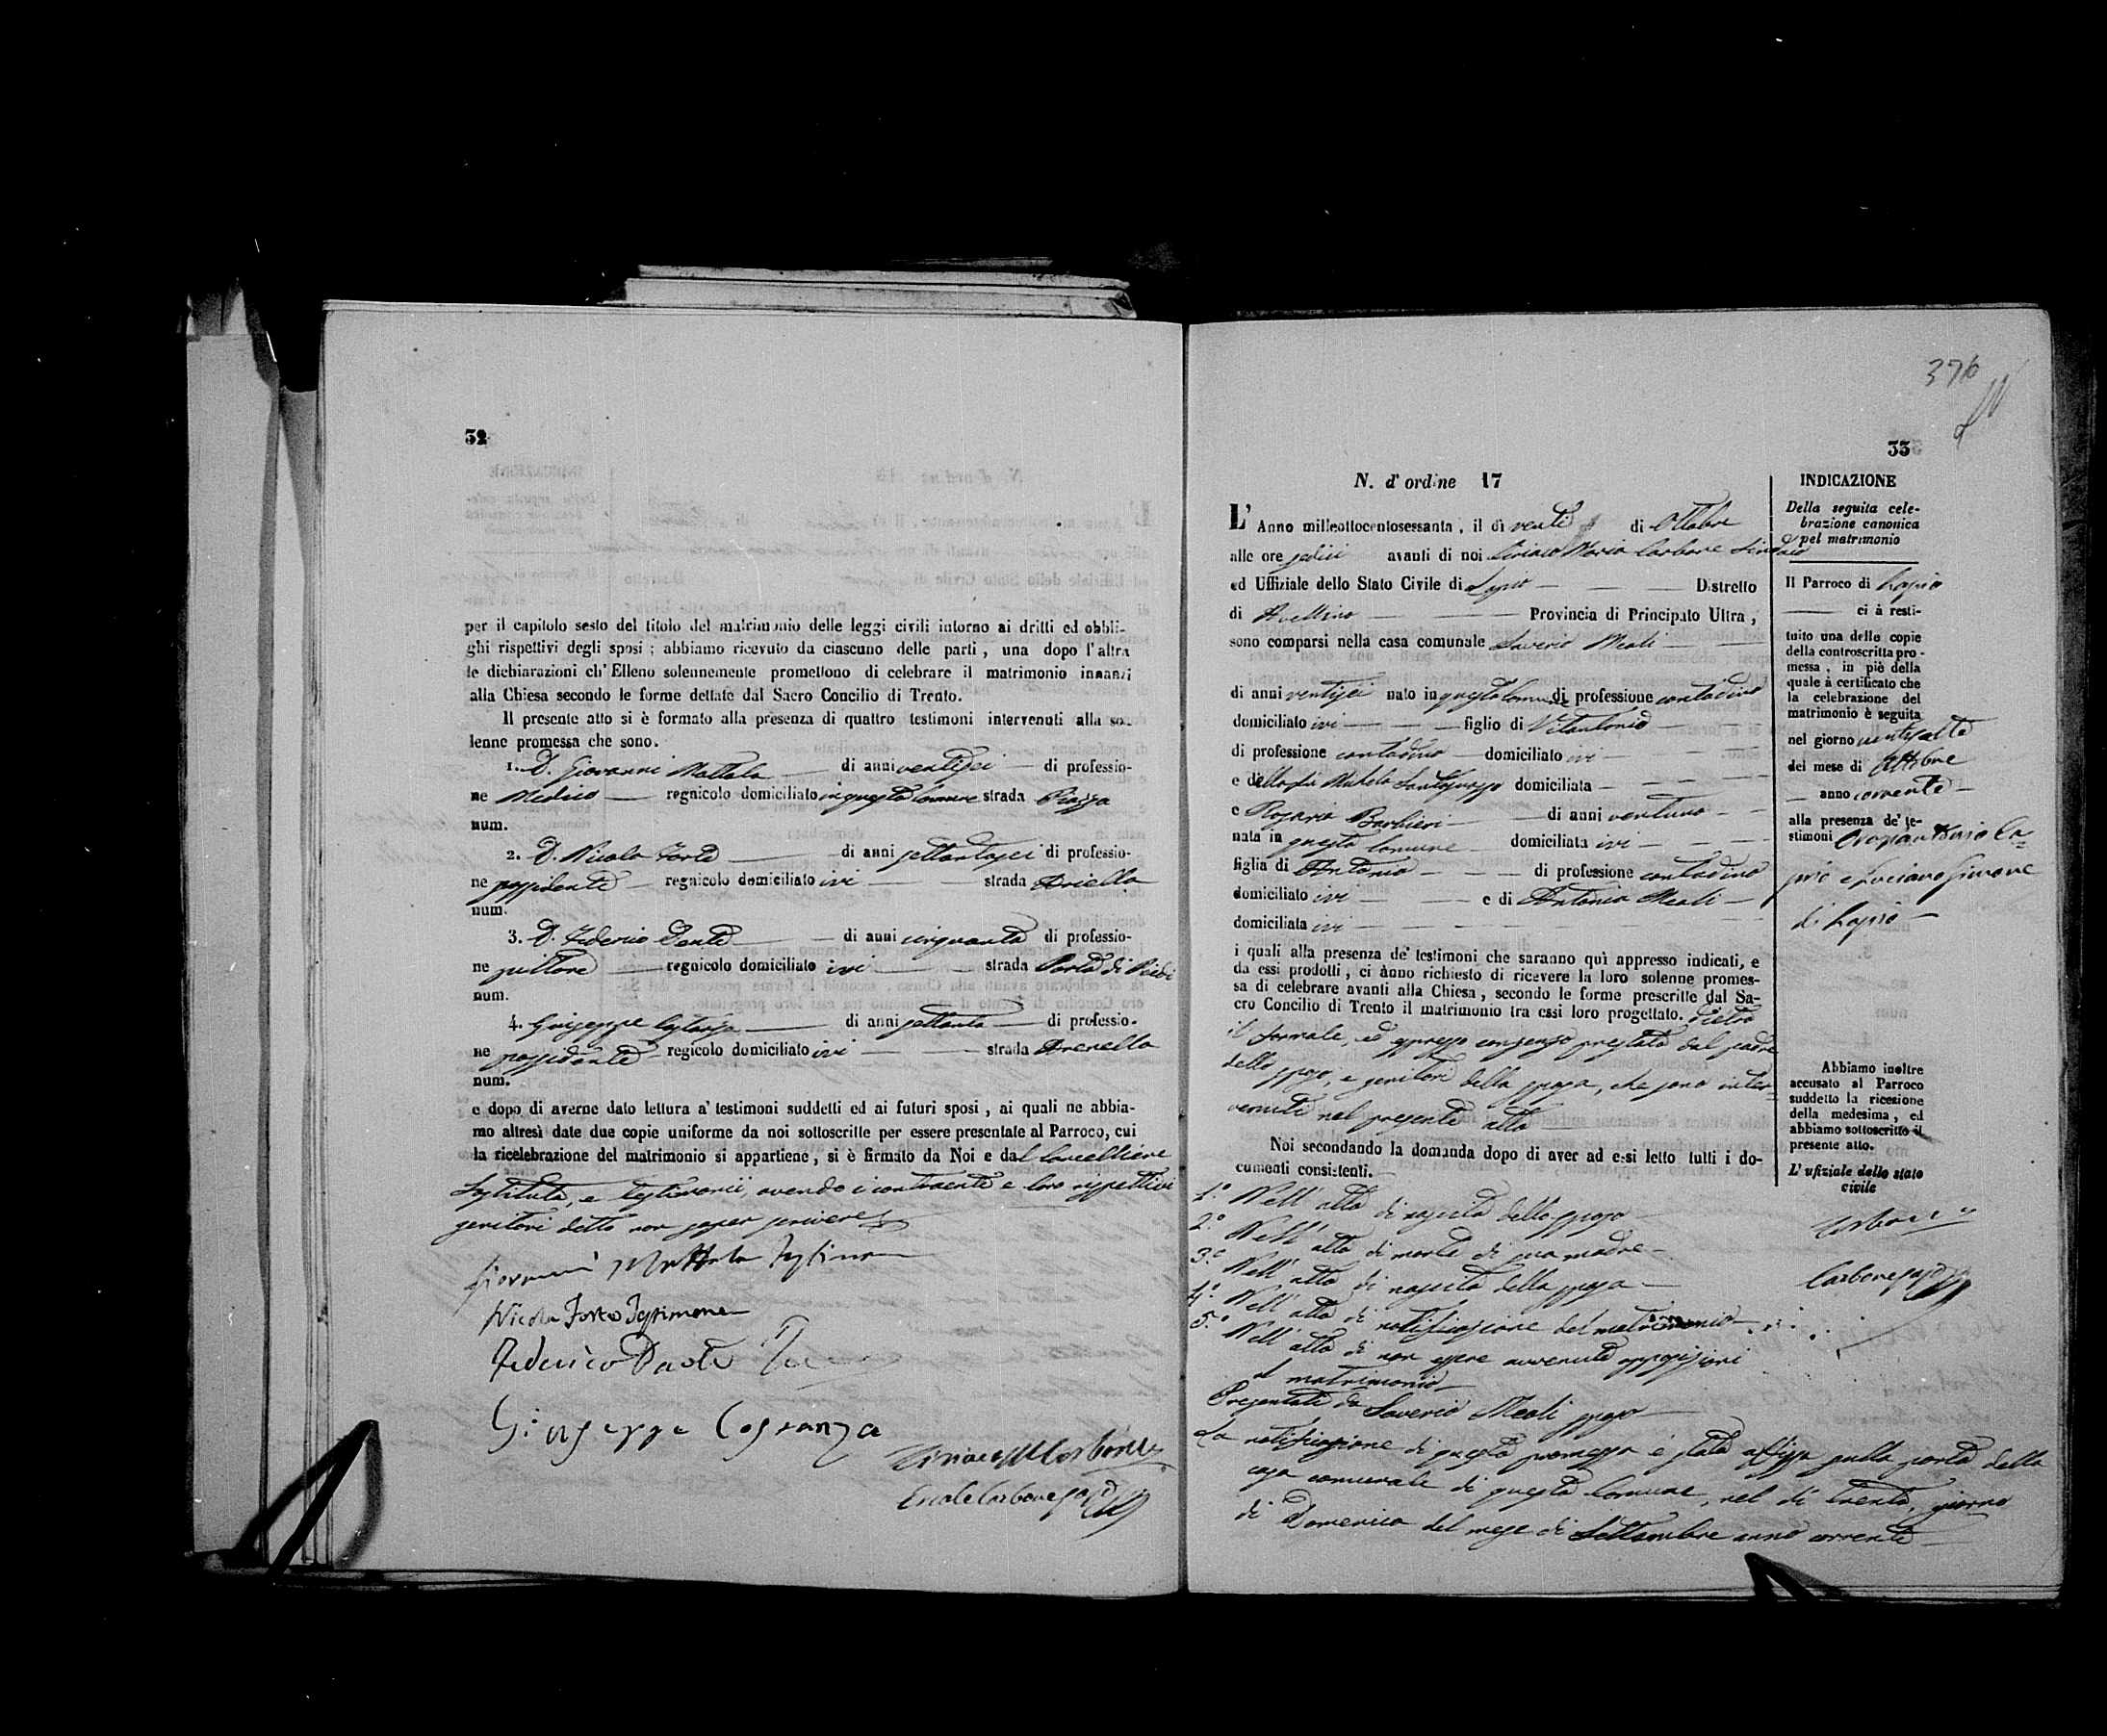 32
per il capitolo sesto del titolo del matrimonio delle leggi civili intorno ai dritti ed obbli-
ghi rispettivi degli sposi ; abbiamo ricevuto da ciascuno delle parti , una dopo l'altra
le dichiarazioni ch' Elleno solennemente promettono di celebrare il matrimonio innanzi
alla Chiesa secondo le forme dettate dal Sacro Concilio di Trento.
Il presente atto si è formato alla presenza di quattro testimoni intervenuti alla so-
lenne promessa che sono.
1. D. Giovanni Mattala di anni ventisei di professio-
ne Medico regnicolo domiciliato in questa Comune strada Piazza
num.
2. D. Nicola Forte di anni settantasei di professio-
ne possidente regnicolo domiciliato ivi strada
num.
3. D. Federico Dente di anni cinquanta di professio-
ne pittore regnicolo domiciliato ivi strada Porta di
num.
4. Giuseppe Costanza di anni settanta di professio-
ne possidente regicolo domiciliato ivi strada
num.
e dopo di averne dato lettura a' testimoni suddetti ed ai futuri sposi , ai quali ne abbia-
mo altresì date due copie uniforme da noi sottoscritte per essere presentate al Parroco, cui
la ricelebrazione del matrimonio si appartiene , si è firmato da Noi e dal Cancelliere
Sostituto, e testimonii, avendo i contraenti e loro rispettivi
genitori detto non saper scrivere
Giovanni Mattala Testimone
Nicola Forte Testimone
Federico Dente
Giuseppe Costanza
Ciriaco M Carbone
Carbone
376
33
N. d' ordine 17
L' Anno milleottocentosessanta , il dì venti di Ottobre
alle ore sedici avanti di noi Ciriaco Maria Carbone Sindaco
ed Uffiziale dello Stato Civile di Lapio Distretto
di Avellino Provincia di Principato Ultra ,
sono comparsi nella casa comunale Saverio Meoli
di anni ventisei nato in questa Comune di professione contadino
domiciliato ivi figlio di Vitantonio
di professione contadino domiciliato ivi
e della fu Michela domiciliata
e Rosaria Barbieri di anni ventuno
nata in questa Comune domiciliata ivi
figlia di Antonio di professione contadino
domiciliato ivi e di Antonia Meoli
domiciliata ivi
i quali alla presenza de' testimoni che saranno quì appresso indicati, e
da essi prodotti , ci ànno richiesto di ricevere la loro solenne promes-
sa di celebrare avanti alla Chiesa , secondo le forme prescritte dal Sa-
cro Concilio di Trento il matrimonio tra essi loro progettato. dietro
il formale, ed espresso consenso prestato dal padre
dello sposo, e genitori della sposa, che sono inter-
venuti nel presente atto
Noi secondando la domanda dopo di aver ad essi letto tutti i do-
cumenti consistenti.
1.º Nell' atto di nascita dello sposo
2.º Nell' atto di morte di sua madre
3.º Nell' atto di nascita della sposa
4.º Nell' atto di notificazione del matrimonio
5.º Nell' atto di non essere avvenute opposizioni
al matrimonio
Presentati da Saverio Meoli sposo
La notificazione di questa promessa è stata affissa sulla porta della
casa comunale di questa Comune, nel dì trenta, giorno
di Domenica del mese di Settembre anno corrente
INDICAZIONE
Della seguita cele-
brazione canonica
pel matrimonio
Il Parroco di Lapio
ci à resti-
tuito una delle copie
della controscritta pro-
messa , in piè della
quale à certificato che
la celebrazione del
matrimonio è seguita
nel giorno ventisette
del mese di Ottobre
anno corrente
alla presenza de' te-
stimoni La-
pio e Luciano Simone
di Lapio
Abbiamo inoltre
accusato al Parroco
suddetto la ricezione
della medesima , ed
abbiamo sottoscritto il
presente atto.
L' ufiziale dello stato
civile
Carbone
Carbone